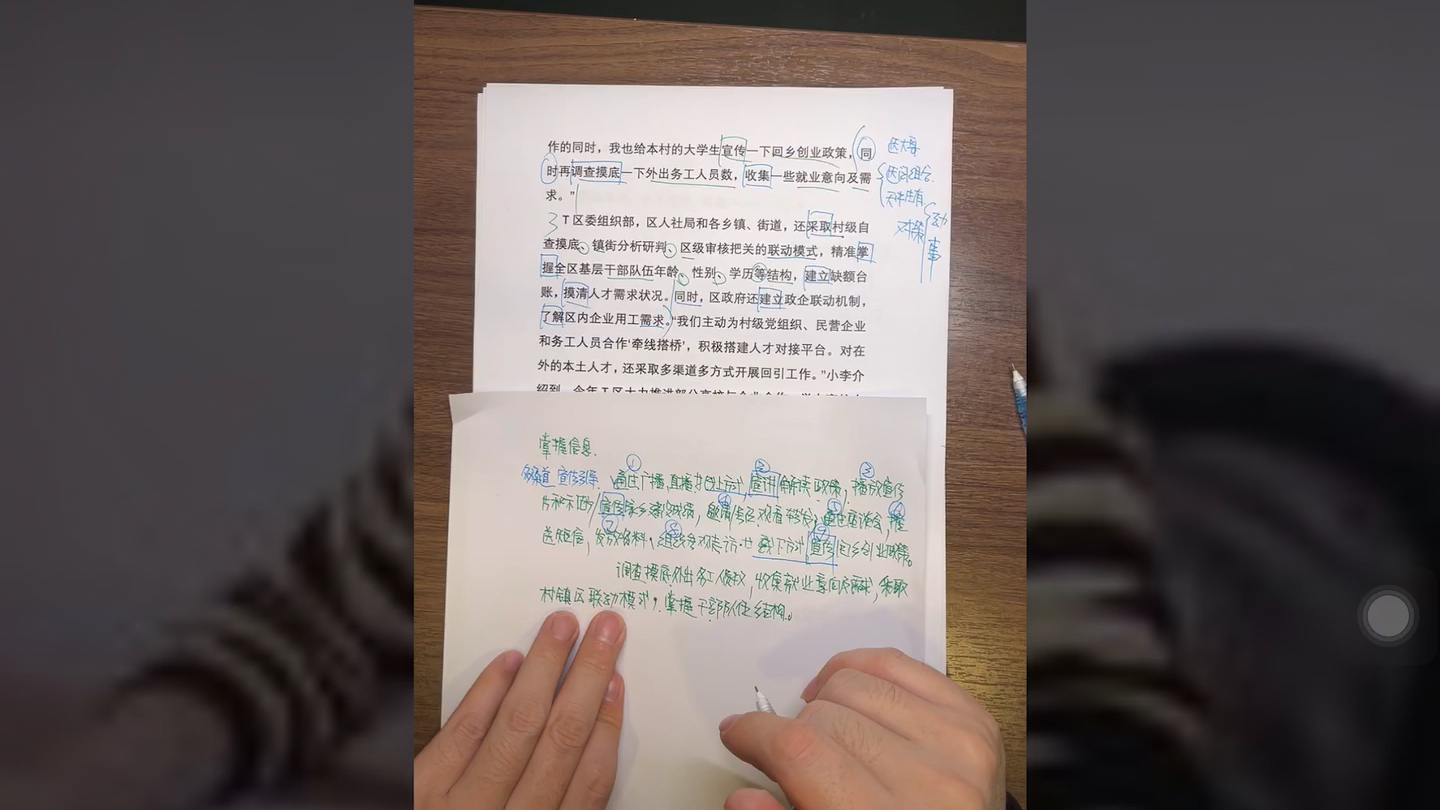 作的同时，我也给本村的大学生宣传一下回乡创业政策，同
时再调查摸底一下外出务工人员数，收集一些就业意向及需
求。”
T区委组织部，区人社局和各乡镇、街道，还采取村级自
查摸底、镇街分析研判、区级审核把关的联动模式，精准掌
握全区基层干部队伍年龄、性别、学历等结构，建立缺额台
账，摸清人才需求状况。同时，区政府还建立政企联动机制，
了解区内企业用工需求。“我们主动为村级党组织、民营企业
和务工人员合作‘牵线搭桥’，积极搭建人才对接平台。对在
外的本土人才，还采取多渠道多方式开展回引工作。”小李介
绍到，今年T区大力推进部分高校与企业合作
对策
事
掌握信息.
多渠道 宣传引导. ① ② ③
通过广播、直播等线上方式,宣讲解读政策,播放宣传
片和不同/宣传家乡建设成绩,邀请 观看 通过座谈会,推
送短信,发放资料、组织参观走访等线下方式宣传回乡创业政策。
调查摸底外出务工人数,收集就业意向及需求,采取
村镇区联动模式,掌握干部队伍结构。